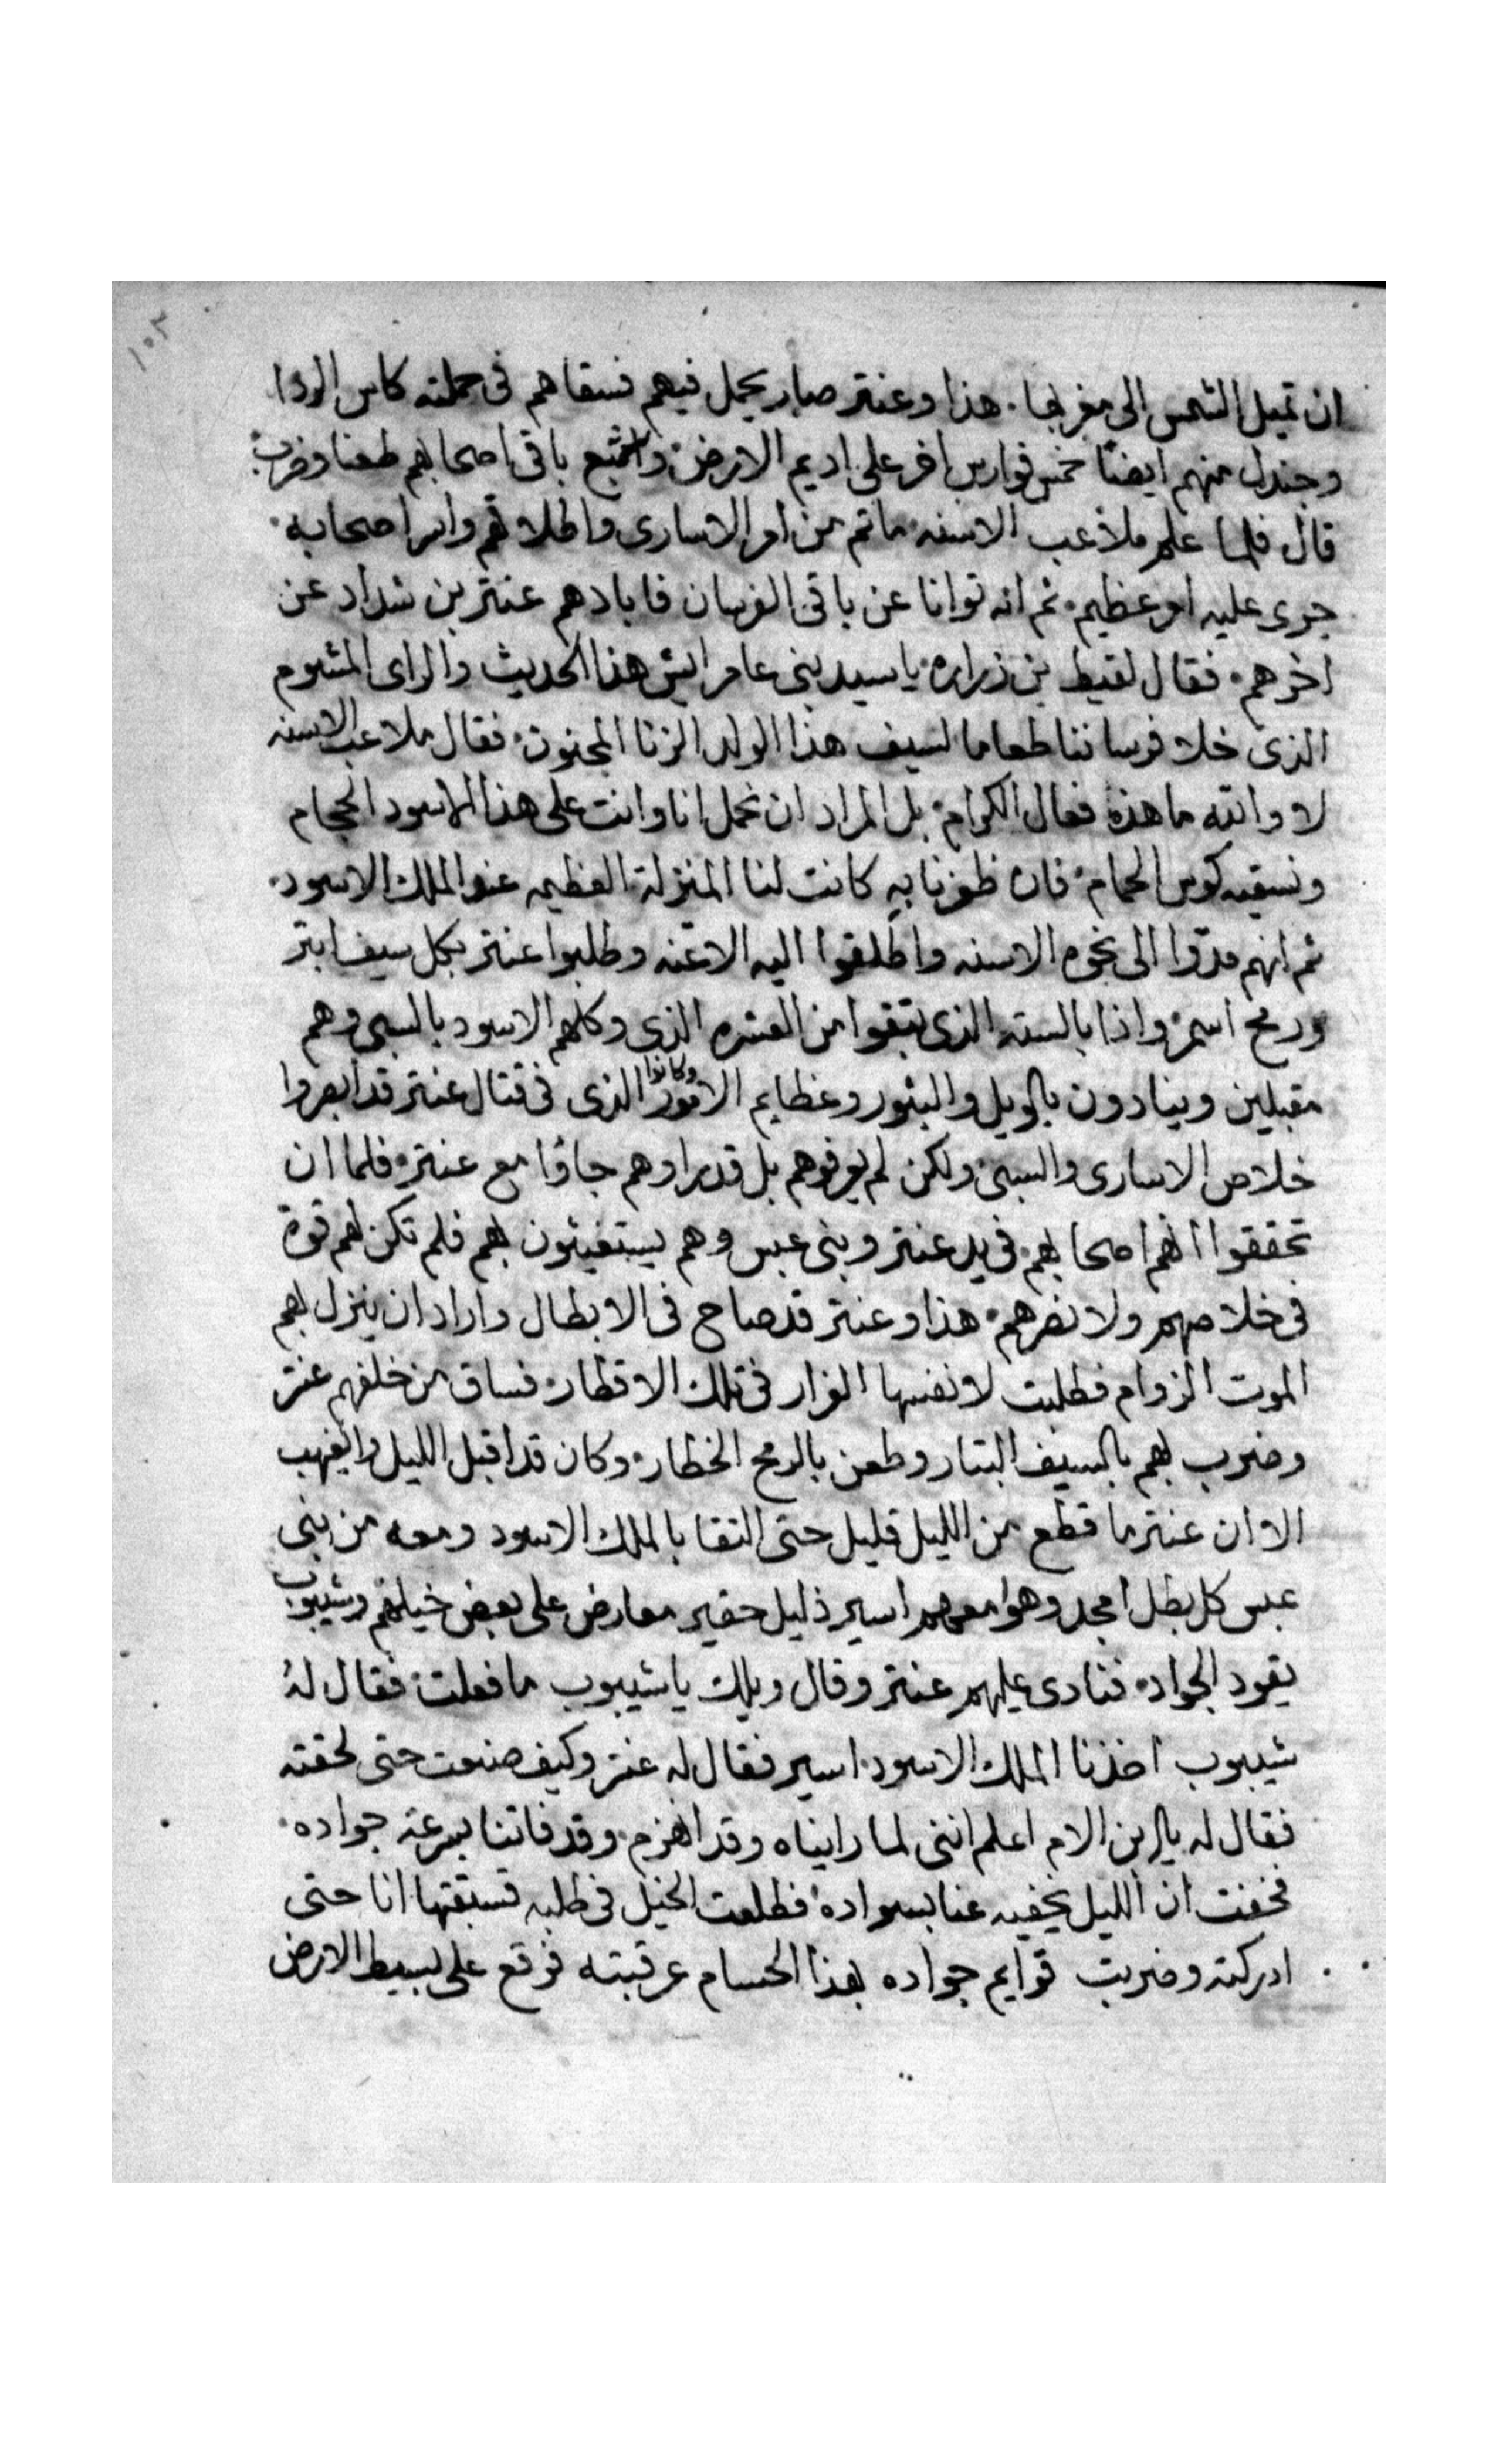 ١٠٣
ان تميل الشمس الى مغربها . هذا وعنتر صار يحمل فيهم فسقاهم فى حملته كاس الردا
وجندل منهم ايضًا خمس فوارس اخر على اديم الارض باقى اصحابهم طعنا وضرب
قال فلما علم ملاعب الاسنه ماتم من امر الاسارى واطلاقهم واسر اصحابه
جرى عليه امر عظيم ثم انه توانا عن باقى الفرسان فابادهم عنتر بن شداد عن
اخرهم فقال لقيط بن زراره يا سيد بنى عامر ايش هذا الحديث والراى المشوم
الذى خلا فرساننا طعاما لسيف هذا الولد الزنا المجنون فقال ملاعب الاسنه
لا والله ما هذه فعال الكرام بل المراد ان نحمل انا وانت على هذا الاسود الحجام
ونسقيه كوس الحمام فان ظفرنا به كانت لنا المنزلة العظيمه عند الملك الاسود
ثم انهم مدّوا الى نحوه الاسنه واطلقوا اليه الاعنه وطلبوا عنتر بكل سيف ابتر
ورمح اسمر واذا بالسته الذى تبقوا من العشره الذى وكلهم الاسود بالسبى وهم
مقبلين وينادون بالويل والثبور وعظايم الامور وكانوا الذى فى قتال عنتر قد ابصروا
خلاص الاسارى والسبى ولكن لم يعرفوهم بل قد راوهم جاؤا مع عنتر فلما ان
تحققوا انهم اصحابهم فى يد عنتر وبنى عبس وهم يستغيثون بهم فلم تكن لهم قوة
فى خلاصهم ولا نصرهم هذا وعنتر قد صاح فى الابطال واراد ان ينزل بهم
الموت الزوام فطلبت لانفسها الفرار فى تلك الاقطار فساق من خلفهم عنتر
وضرب بهم بالسيف البتار وطعن بالرمح الخطار وكان قد اقبل الليل والغيهب
الا ان عنتر ما قطع من الليل قليل حتى التقا بالملك الاسود ومعه من بنى
عبس كل بطل امجد وهوا معهم اسير ذليل حقير معارض على بعض خيلهم وشيبوب
يقود الجواد فنادى عليهم عنتر وقال ويلك يا شيبوب ما فعلت فقال لهُ
شيبوب اخذنا الملك الاسود اسير فقال له عنتر وكيف صنعت حتى لحقته
فقال له يابن الام اعلم اننى لما رايناه وقد انهزم وقد فاتنا بسرعة جواده
فخفت ان الليل يخفيه عنا بسواده فطلعت الخيل فى طلبه فسبقتها انا حتى
ادركته وضربت قوايم جواده بهذا الحسام عرقبته فوقع على بسيط الارض